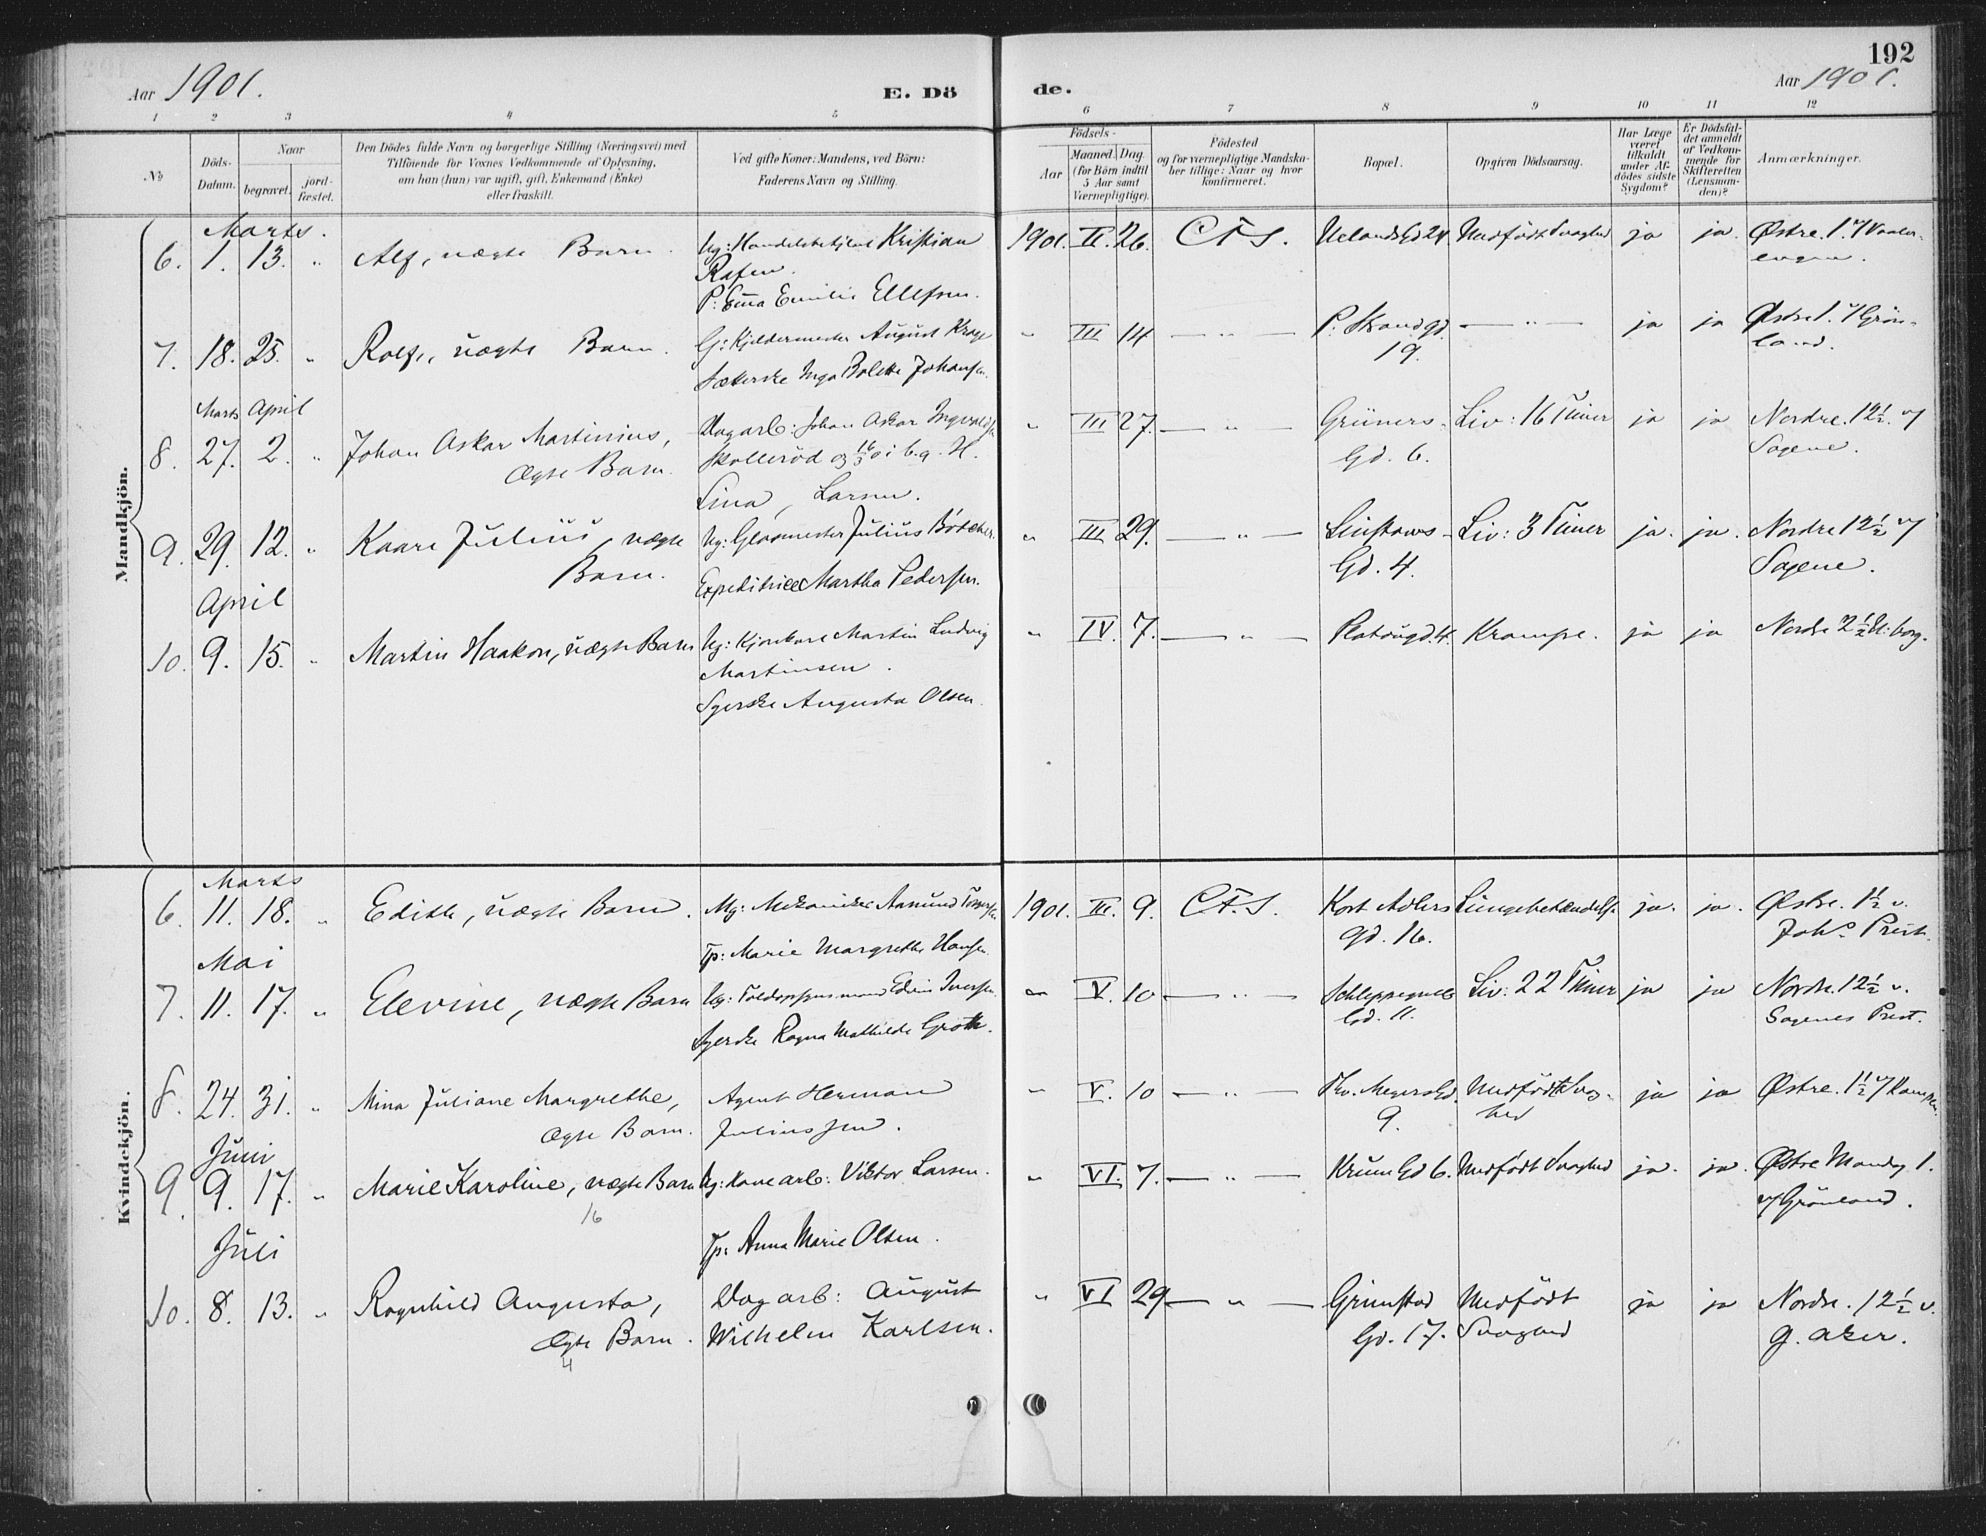 192
Aar 1901.
E. Dö
de.
Aar 1901.
1 2 3 4 5 6 7 8 9 10 11 12
№
Döds-
Datum.
Naar
begravet.
jord-
fæstet.
Den Dödes fulde Navn og borgerlige Stilling (Næringsvei) med
Tilföiende for Voxnes Vedkommende af Oplysning,
om han (hun) var ugift, gift, Enkemand (Enke)
eller fraskilt.
Ved gifte Koner: Mandens, ved Börn:
Faderens Navn og Stilling.
Födsels-
Aar
Maaned. Dag.
(for Börn indtil
5 Aar samt
Værnepligtige).
Födested
og for værnepligtige Mandska-
ber tillige: Naar og hvor
konfirmeret.
Bopæl.
Opgiven Dödsaarsag.
Har Læge
været
tilkaldt
under Af-
dödes sidste
Sygdom?
Er Dödsfal-
det anmeldt
af Vedkom-
mende for
Skifteretten
(Lensman-
den)?
Anmærkninger.
Mandkjön.
Marts.
6. 1. 13. " Alf, uægte Barn. Ug: Handelsbetjent Kristian 1901. II. 26. C.F.S. Uelands Gd 24 Medfödt Svaghed ja ja. Østre. 1. v/ Vaaler-
engen.
P: Emilie Ellefsen.
7. 18. 25. " Rolf, uægte Barn. G: Kjeldermester August " III 14 — " — P: Strandgd. — " — ja ja Østre 1. v/ Grön-
land.
19.
Inga Bolette Johansen.
Marts April
8. 27. 2. " Johan Oskar Martinius, Dagarb: Johan Oskar " III 27. — " — Grüners- Liv: 16 Timer ja ja Nordre. 12½. v/
Ægte Barn. Gd. 6. Sagene.
Lina, Larsen.
9. 29. 12. " Kaare Julius, uægte Ug: Julius " III 29. — " — Linstows- Liv: 3 Timer ja. ja. Nordre 12½ v/
Barn. Expeditrice Martha Pedersen. Gd. 4. Sagene.
April
10. 9. 15. " Martin Haakon, uægte Barn Ug: Martin Ludvig " IV. 7. — " — Platougd. 4. Krampe. ja ja Nordre 2½
Martinsen.
Syerske Augusta Olsen.
Kvindekjön.
Marts
6. 11. 18. " Edith, uægte Barn. Ug: Mekaniker Aamund 1901. III. 9. C.F.S. Kort Adlers Lungebetændelse ja. ja. Østre. 1½ v.
gd. 16. Joh<sup>s</sup> Prest.
Tp: Marie Margrethe Hansen
Mai
7. 11. 17. " Elevine, uægte Barn Ug: Edvin Iversen. " V. 10 — " — Schleppegrells Liv: 22 Timer ja ja Nordre. 12½ v.
Gd. 11. Sagenes Prest.
Syerske Ragna Mathilde Groth.
8. 24. 31. " Mina Juliane Margrethe, Agent Herman " V. 10 — " — Thv. Meyers Gd. Medfödt Svag- ja ja Østre. 1½ v/
Ægte Barn. Julius sen. 9. hed
Juni
9. 9. 17. " Marie Karoline, uægte Barn Ug: arb: Viktor Larsen. " VI. 7. — " — Krum Gd 6. Medfödt Svaghed ja. ja. Østre Mandag 1.
v/ Grönland.
16
Tp: Anna Marie Olsen.
Juli
10. 8. 13. " Ragnhild Augusta, Dagarb: August " VI 29 — " — Grimstad Medfödt ja ja Nordre. 12½ v.
Ægte Barn. Wilhelm Karlsen. Gd. 17. Svaghed G. Aker.
4